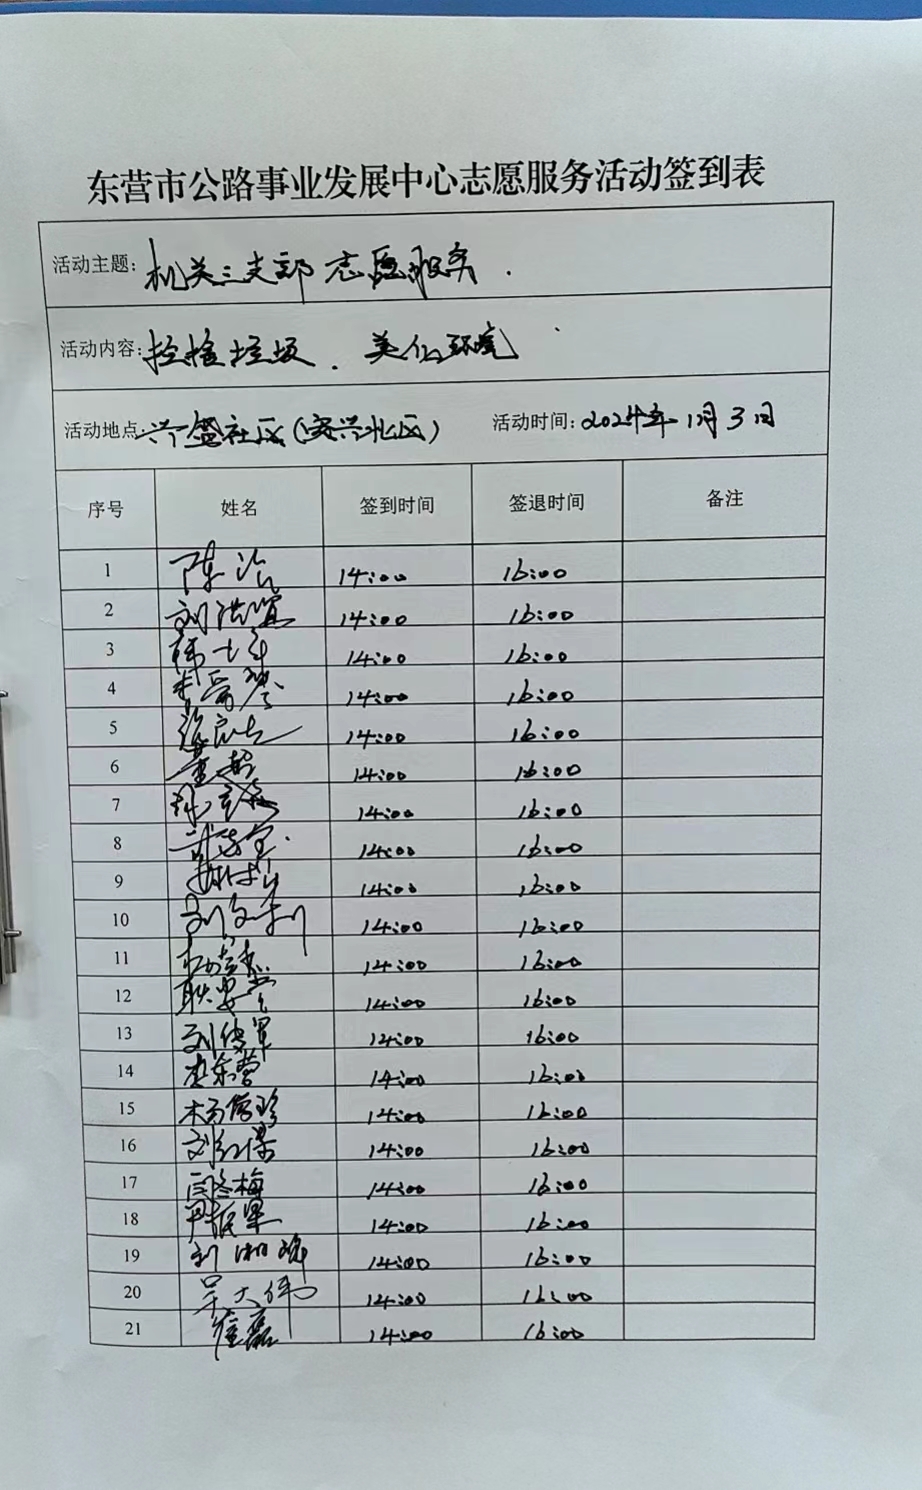 东营市公路事业发展中心志愿服务活动签到表
活动主题: 机关三支部 志愿服务.
活动内容: 捡拾垃圾. 美化环境
活动地点: 兴盛社区(安兴北区) 活动时间: 2024年1月3日
序号 姓名 签到时间 签退时间 备注
1 陈 14:00 16:00
2 刘洪 14:00 16:00
3 韩 14:00 16:00
4 14:00 16:00
5 14:00 16:00
6 董超 14:00 16:00
7 14:00 16:00
8 14:00 16:00
9 14:00 16:00
10 刘文利 14:00 16:00
11 14:00 16:00
12 耿 14:00 16:00
13 刘传军 14:00 16:00
14 李东营 14:00 16:00
15 杨 14:00 16:00
16 刘红 14:00 16:00
17 闫冬梅 14:00 16:00
18 尹振 14:00 16:00
19 刘湘 14:00 16:00
20 吴大伟 14:00 16:00
21 崔磊 14:00 16:00